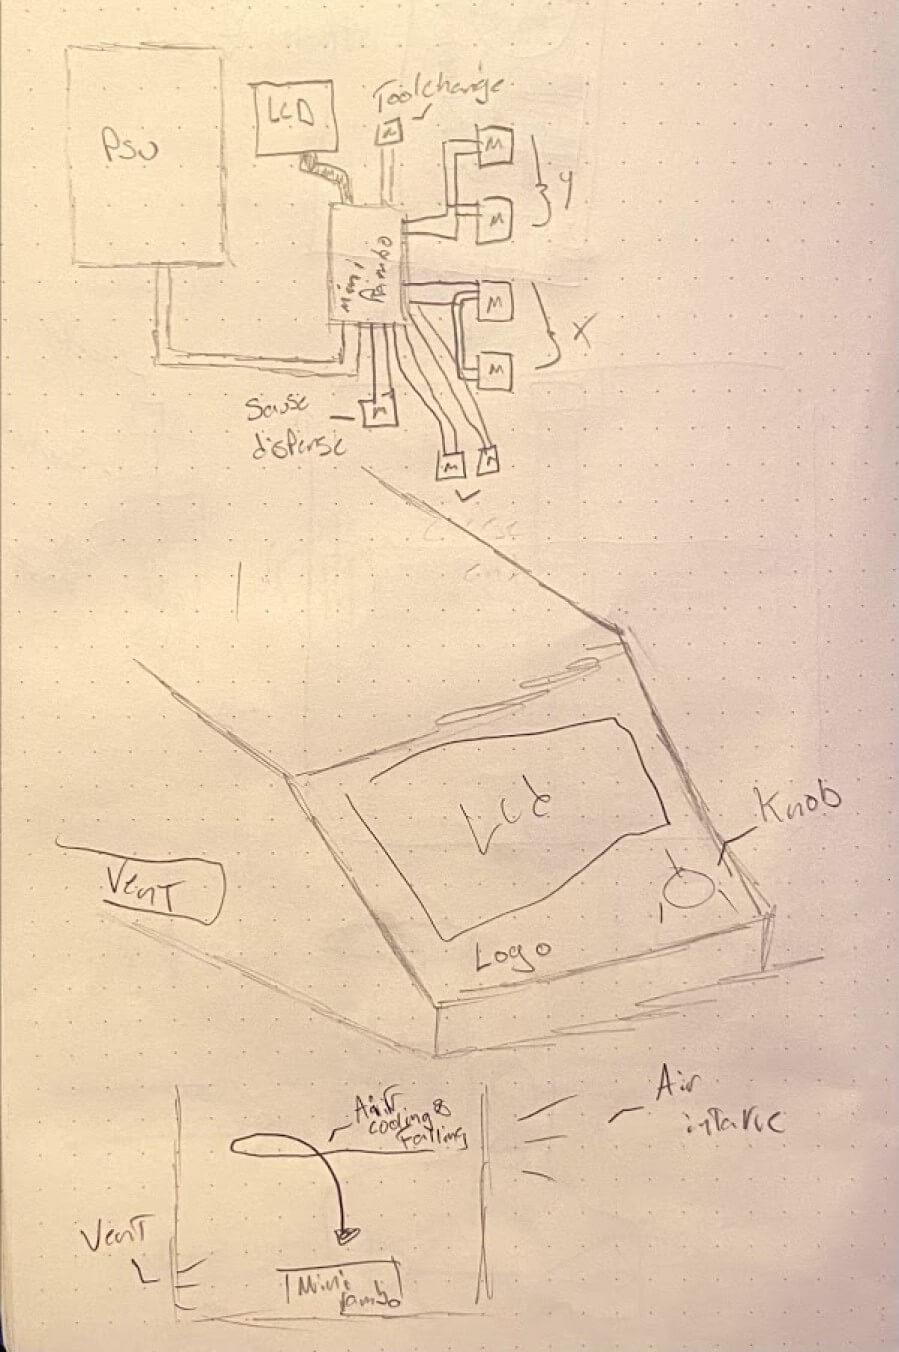 PSU
LCD
Toolchange
M
M
M
Y
M
M
X
Sause
dispense
M
M
M
LCD
Knob
Vent
Logo
Air
cooling &
Falling
Air
intake
Vent
Mini
rambo